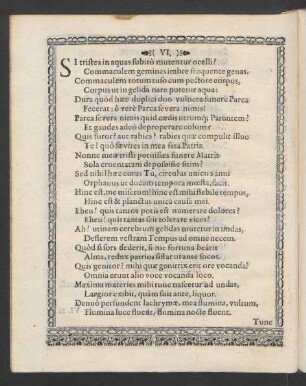 VI.
SI tristes in aquas subitò mutentur ocelli?
Commaculem geminas imbre frequente genas.
Commaculem totum fuso cum pectore corpus,
Corpus ut in gelida nare putetur aqua:
Dura quòd hæc duplici don vulnera funere Parca
Fecerat; ô verè Parca severa nimis!
Parca severa nimis quid cædis utrumq; Parentem?
Et gaudes adeò deproperare colum?
Quis furor? aut rabies? rabies quæ compulit illuc
Te? quò sævires in mea fata Patris.
Nonne meæ tristi potuisses funere Matris
Sola cruentatam deposuisse sitim?
Sed nihil hæc curas Tu, circulus unicus anni
Orphanus ut ducam tempora mœsta, facit.
Hinc est, me miserom! hinc est mihi flebile tempus,
Hinc est & planctus unica causa mei.
Eheu! quis tantos potis est numerare dolores?
Eheu! quis tantas scit tolerare vices?
Ah! utinam cerebrum gelidas mutetur in undas,
Deflerem vestram Tempus ad omne necem.
Quòd si fors dederit, si sic fortuna bearit
Alma, redux patrios sistat ut ante focos.
Quis genitor? mihi quæ genitrix erit ore vocanda?
Omnia erunt alio voce vocanda loco.
Maxima materies mihi tunc nascetur ad undas,
Largior exibit, quàm fuit ante, liquor.
Denuò perfundent lachrymæ, mea flumina, vultum,
Flumina luce fluent, flumina nocte fluent.
Tunc